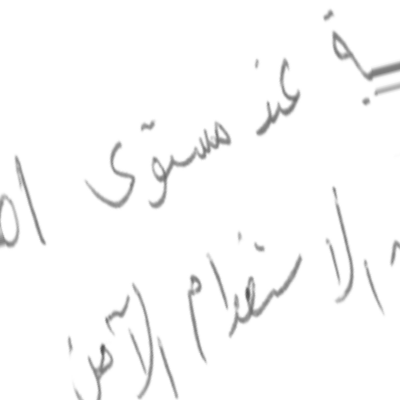 عند مستوى
الاستخدام الآمن